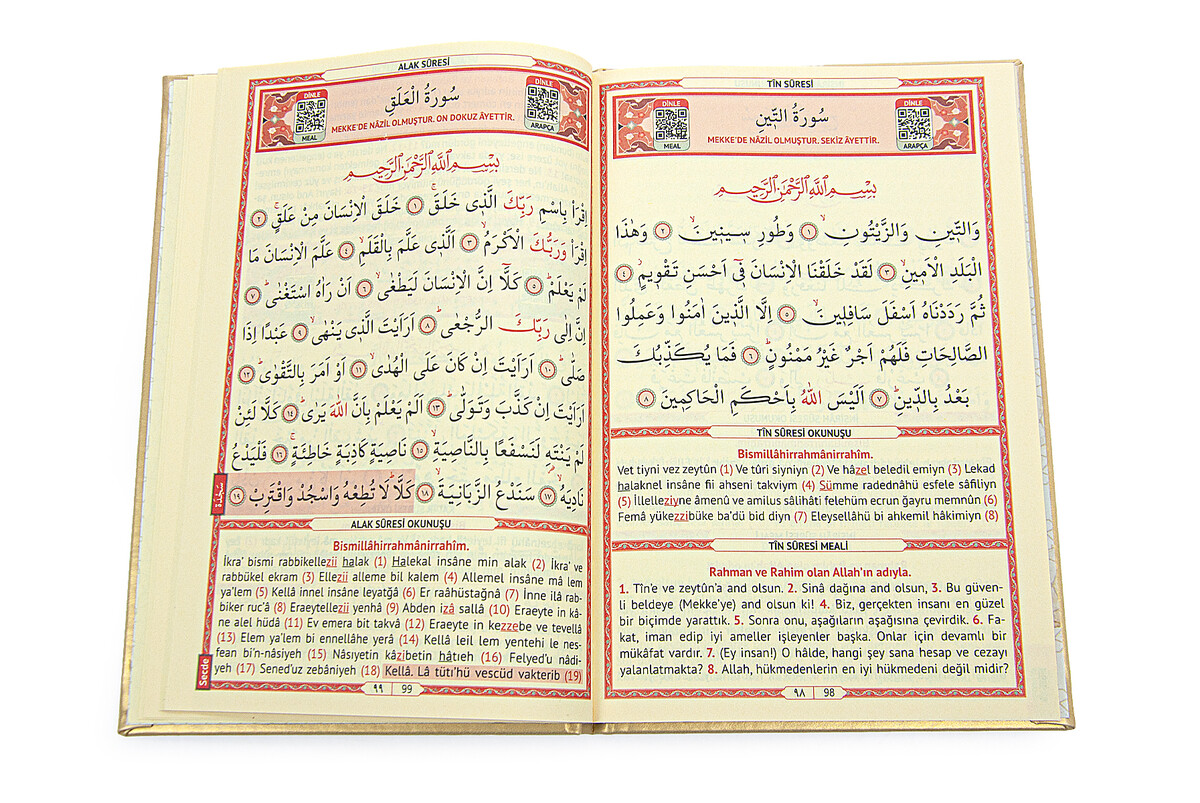 TÎN SÛRESİ
DİNLE
MEAL
سُورَةُ التّ۪ينِ
MEKKE'DE NÂZİL OLMUŞTUR. SEKİZ ÂYETTİR.
DİNLE
ARAPÇA
بِسْمِ اللّٰهِ الرَّحْمٰنِ الرَّح۪يمِ
وَالتّ۪ينِ وَالزَّيْتُونِۙ ﴿١﴾ وَطُورِ س۪ين۪ينَۙ ﴿٢﴾ وَهٰذَا
الْبَلَدِ الْاَم۪ينِۙ ﴿٣﴾ لَقَدْ خَلَقْنَا الْاِنْسَانَ ف۪ٓي اَحْسَنِ تَقْو۪يمٍۘ ﴿٤﴾
ثُمَّ رَدَدْنَاهُ اَسْفَلَ سَافِل۪ينَۙ ﴿٥﴾ اِلَّا الَّذ۪ينَ اٰمَنُوا وَعَمِلُوا
الصَّالِحَاتِ فَلَهُمْ اَجْرٌ غَيْرُ مَمْنُونٍۜ ﴿٦﴾ فَمَا يُكَذِّبُكَ
بَعْدُ بِالدّ۪ينِۜ ﴿٧﴾ اَلَيْسَ اللّٰهُ بِاَحْكَمِ الْحَاكِم۪ينَ ﴿٨﴾
TÎN SÛRESİ OKUNUŞU
Bismillâhirrahmânirrahîm.
Vet tiyni vez zeytûn (1) Ve tûri siyniyn (2) Ve hâzel beledil emiyn (3) Lekad
halaknel insâne fii ahseni takviym (4) Sümme radednâhü esfele sâfiliyn
(5) İllelleziyne âmenû ve amilus sâlihâti felehüm ecrun ğayru memnûn (6)
Femâ yükezzibüke ba'dü bid diyn (7) Eleysellâhü bi ahkemil hâkimiyn (8)
TÎN SÛRESİ MEALİ
Rahman ve Rahim olan Allah'ın adıyla.
1. Tîn'e ve zeytûn'a and olsun. 2. Sinâ dağına and olsun, 3. Bu güven-
li beldeye (Mekke'ye) and olsun ki! 4. Biz, gerçekten insanı en güzel
bir biçimde yarattık. 5. Sonra onu, aşağıların aşağısına çevirdik. 6. Fa-
kat, iman edip iyi ameller işleyenler başka. Onlar için devamlı bir
mükâfat vardır. 7. (Ey insan!) O hâlde, hangi şey sana hesap ve cezayı
yalanlatmakta? 8. Allah, hükmedenlerin en iyi hükmedeni değil midir?
٩٨ 98
ALAK SÛRESİ
DİNLE
MEAL
سُورَةُ الْعَلَقِ
MEKKE'DE NÂZİL OLMUŞTUR. ON DOKUZ ÂYETTİR.
DİNLE
ARAPÇA
بِسْمِ اللّٰهِ الرَّحْمٰنِ الرَّح۪يمِ
اِقْرَاْ بِاسْمِ رَبِّكَ الَّذ۪ي خَلَقَۚ ﴿١﴾ خَلَقَ الْاِنْسَانَ مِنْ عَلَقٍۚ ﴿٢﴾
اِقْرَاْ وَرَبُّكَ الْاَكْرَمُۙ ﴿٣﴾ اَلَّذ۪ي عَلَّمَ بِالْقَلَمِۙ ﴿٤﴾ عَلَّمَ الْاِنْسَانَ مَا
لَمْ يَعْلَمْۜ ﴿٥﴾ كَلَّٓا اِنَّ الْاِنْسَانَ لَيَطْغٰىۙ ﴿٦﴾ اَنْ رَاٰهُ اسْتَغْنٰىۜ ﴿٧﴾
اِنَّ اِلٰى رَبِّكَ الرُّجْعٰىۜ ﴿٨﴾ اَرَاَيْتَ الَّذ۪ي يَنْهٰىۙ ﴿٩﴾ عَبْدًا اِذَا
صَلّٰىۜ ﴿١٠﴾ اَرَاَيْتَ اِنْ كَانَ عَلَى الْهُدٰىۙ ﴿١١﴾ اَوْ اَمَرَ بِالتَّقْوٰىۜ ﴿١٢﴾
اَرَاَيْتَ اِنْ كَذَّبَ وَتَوَلّٰىۜ ﴿١٣﴾ اَلَمْ يَعْلَمْ بِاَنَّ اللّٰهَ يَرٰىۜ ﴿١٤﴾ كَلَّا لَئِنْ
لَمْ يَنْتَهِ لَنَسْفَعًا بِالنَّاصِيَةِۙ ﴿١٥﴾ نَاصِيَةٍ كَاذِبَةٍ خَاطِئَةٍۚ ﴿١٦﴾ فَلْيَدْعُ
نَادِيَهُۙ ﴿١٧﴾ سَنَدْعُ الزَّبَانِيَةَۙ ﴿١٨﴾ كَلَّاۜ لَا تُطِعْهُ وَاسْجُدْ وَاقْتَرِبْ ﴿١٩﴾
سَجْدَة
ALAK SÛRESİ OKUNUŞU
Bismillâhirrahmânirrahîm.
İkra' bismi rabbikellezii halak (1) Halekal insâne min alak (2) İkra' ve
rabbükel ekram (3) Ellezii alleme bil kalem (4) Allemel insâne mâ lem
ya'lem (5) Kellâ innel insâne leyatğâ (6) Er raâhüstağnâ (7) İnne ilâ rab-
biker ruc'â (8) Eraeytellezii yenhâ (9) Abden izâ sallâ (10) Eraeyte in kâ-
ne alel hüdâ (11) Ev emera bit takvâ (12) Eraeyte in kezzebe ve tevellâ
(13) Elem ya'lem bi ennellâhe yerâ (14) Kellâ leil lem yentehi le nes-
fean bi'n-nâsiyeh (15) Nâsıyetin kâzibetin hâtıeh (16) Felyed'u nâdi-
yeh (17) Sened'uz zebâniyeh (18) Kellâ. Lâ tütı'hü vescüd vakterib (19)
Secde
٩٩ 99